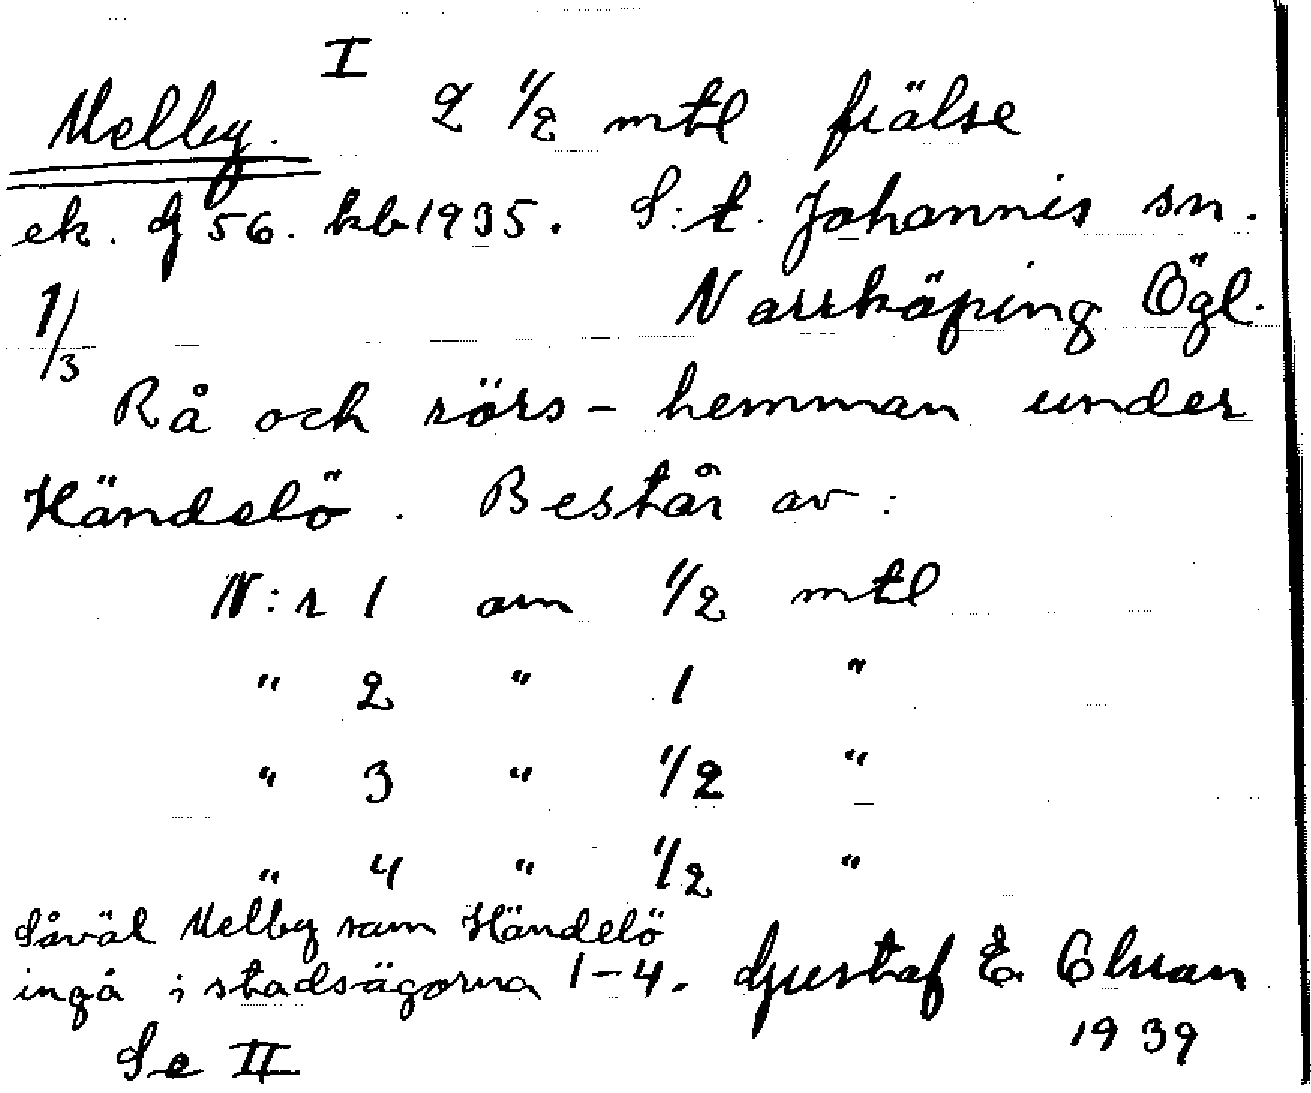 I
Melby. 2 1/2 mtl frälse
ek. dj 56. kb 1935. S:t. Johannis sn.
1/3 Norrköping Ögl.
Rå och rörs - hemman under
Händelö. Består av:
N:r 1 om 1/2 mtl
" 2 " 1 "
" 3 " 1/2 "
" 4 " 1/2 "
Såväl Melby som Händelö
ingå i stadsägorna 1-4. Gustaf E.
1939
Se II